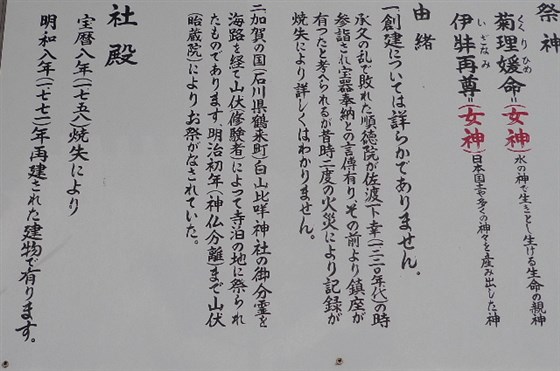 祭神
くくりひめ
菊理媛命=(女神)水の神で生きとし生ける生命の親神
いざなみ
伊弉再尊=(女神)日本国土や多くの神々を産み出した神
由緒
一創建については詳らかでありません。
承久の乱で敗れた順徳院が佐渡下幸(一二二〇年代)の時
参詣され宝器奉納との言傳有り、その前より鎮座が
有つたと考えられるが昔時二度の火災により記録が
焼失により詳しくはわかりません。
二加賀の国(石川県鶴来町)白山比咩神社の御分霊を
海路を経て山伏(修験者)によって寺泊の地に祭られ
たものであります、明治初年(神仏分離)まで山伏
(昭蔵院)によりお祭がなされていた。
社殿
宝暦八年(一七五八)焼失により
明和八年(一七七一)年再建された建物で有ります。